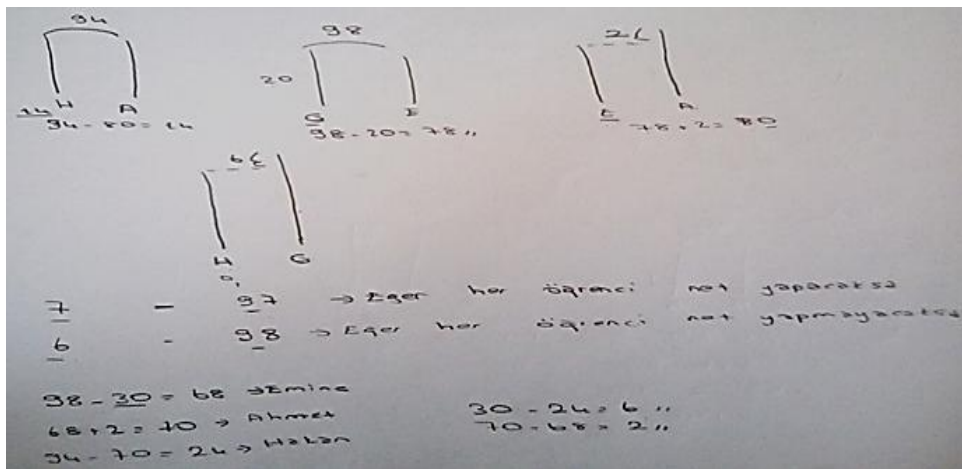 94
H A
14
94 - 80 = 14
98
20
G E
98 - 20 = 78 ,,
2
E A
78 + 2 = 80
6
H G
0,
7 - 97 → Eger her ögrenci not yaparsa
6 - 98 → Eger her ögrenci not
98 - 30 = 68 → Emine
68 + 2 = 70 → Ahmet
94 - 70 = 24 → Hakan
30 - 24 = 6 ,,
70 - 68 = 2 ,,